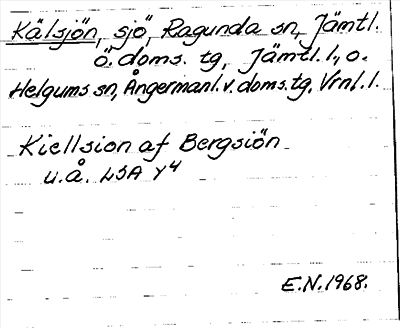 Kälsjön, sjö, Ragunda sn, Jämtl.
ö. doms. tg, Jämtl. l., o.
Helgums sn, Ångermanl. v. doms. tg, Vrnl. l.
Kiellsion af Bergsiön
u.å. LSA Y4
E.N. 1968.